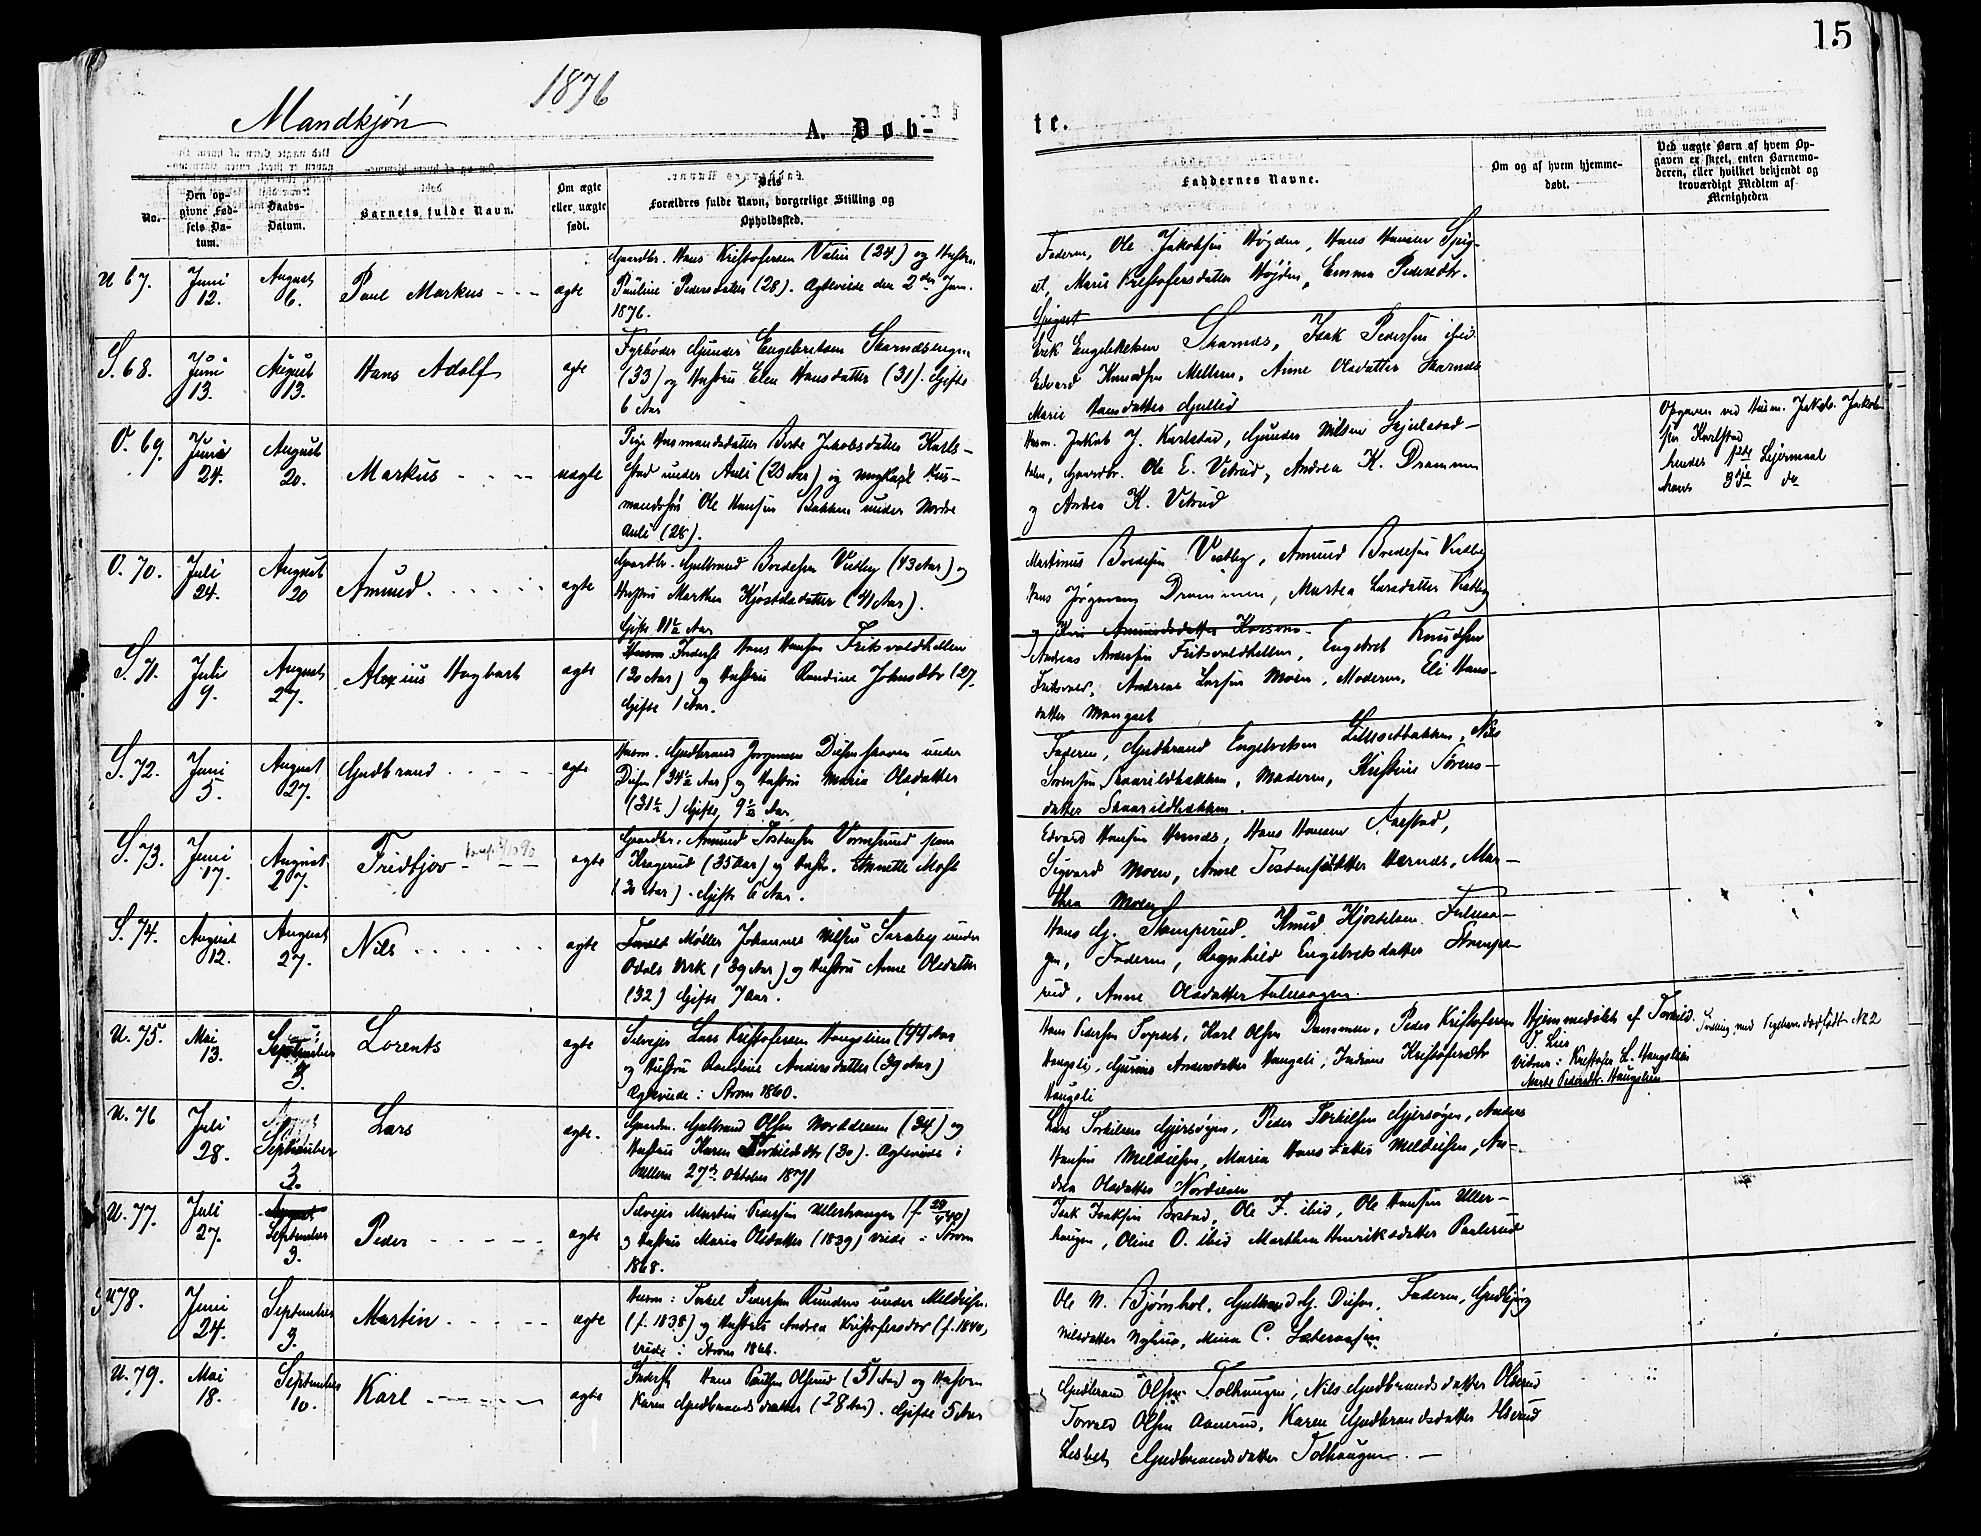 15
1876
Mandkjøn
A. Døb-
te.
No.
Den op-
givne Fød-
sels Da-
tum.
Daabs-
Datum.
Barnets fulde Navn.
Om ægte
eller uægte
født.
Forældres fulde Navn, borgerlige Stilling og
Opholdssted.
Faddernes Navne.
Om og af hvem hjemme-
døbt.
Ved uægte Børn af hvem Op-
gaven er skeet, enten Barnemo-
deren, eller hvilket bekjendt og
troværdigt Medlem af
Menigheden
U 67. Juni 12. August 6. Paul Markus - - - ægte
Gaardbr. Hans Kristofersen (24) og Hustru
Pauline Pedersdatter (28). Ægteviede den 2den Jan.
1876.
Faderen, Ole Jakobsen Højden, Hans Hansen Spig-
et, Marie Kristofersdatter Højden, Emma Pedersdtr.
Spigset
S. 68. Juni 13. August 13. Hans Adolf ægte
Fyrbøder Gunder Engebretsen
(33) og Hustru Elen Hansdatter (31). Gifte
6 Aar
Erik Engebretsen Skarnes, Isak Pedersen ibid.
Edvard Knudsen Mellem, Anne Olsdatter Skarnes
Marie Hansdatter Gullid
O. 69. Juni 24. August 20. Markus - - - uægte
Pige Husmandsdatter Berte Jakobsdatter Karls-
stad under Auli (23 Aar) og ungkarl Hus-
mandssøn Ole Hansen Bakken under Nordre
Auli (28).
Husm. Jakob J. Karlstad, Gunder Nilsen
Gaardbr. Ole E. Vilrud, Andrea K. Drammen
og Andrea K. Vilrud
Opgaven ved Husm. Jakob Jakob-
sen Karlstad
hendes 1ste Leiermaal
hans 3dje do
O. 70. Juli 24. August 20 Amund. . . . . . ægte
Gaardbr. Gulbrand Bredesen Vestby (43 Aar) og
Hustru Marthea Kjøstelsdatter (41 Aar).
Gifte 11½ Aar
Martinus Bredesen Vestby, Amund Bredesen Vestby
Hans Jørgensen Drammen, Martea Larsdatter Vestby
og Amundsdatter Korsmo.
S. 71. Juli 9. August 27. Alexius Hagbart ægte
Inderst Hans Hansen Fritsvoldhellen
(30 Aar) og Hustru Randine Johnsdtr (27.
Gifte 1 Aar.
Andreas Andersen Fritsvoldhellen, Engebret Knudsen
Fritsvold, Andreas Larsen Moen, Moderen, Eli Hans-
datter Mangset
S. 72. Juni 5. August 27. Gudbrand . . . . . ægte
Husm. Gudbrand Jørgensen under
Disen (34½ Aar) og Hustru Maria Olsdatter
(31½) Gifte 9½ Aar.
Faderen, Gudbrand Engebretsen Lillesetbakken, Nils
Sørensen Skaarildbakken, Moderen, Kristine Sørens-
datter Skaarildbakken.
S. 73. Juni 17. August 27. Fridtjov ægte
Gaardbr. Amund Tostensen Vormsund
Kragerud (35 Aar) og Hustr. Annette
(30 Aar). Gifte 6 Aar.
Edvard Hansen Hernes, Hans Hansen Aarstad,
Sigvard Moen, Anne Tostensdatter Hernes, Mar-
thea Moen
S. 74. August 12. August 27. Nils . . . . . . ægte
Møller Johannes Nilsen under
Odals Verk (39 Aar) og Hustru Anne Olsdatter
(32) Gifte 7 Aar.
Hans G. Stomperud, Knud Kjøstelsen Fulusa-
gen, Faderen, Ragnhild Engebretsdatter Stompe-
rud, Anne Olsdatter Fulusagen.
U. 75. Mai 13. September 3. Lorents ægte
Selveier Lars Kristofersen Haugslien (44 Aar)
og Hustru Andersdatter (39 Aar)
Ægteviede i Strøm 1860.
Hans Pedersen Topset, Karl Olsen Dammen, Peder Kristofersen
Haugsli, Gurine Andersdatter Haugsli, Indiane Kristofersdtr
Haugsli
Hjemmedøbt af Torkild
T. Lie
Vidner: Kristofer L. Haugslien
Marte Pedersdtr. Haugslien
Tvilling med Pigebarn dødfødt No 2
U. 76 Juli 28. September 3. Lars ægte.
Gaardm. Gulbrand Olsen Nordveien (34) og
Hustru Karen Torkildsdtr (30). Ægteviede i
Ullern 27de Oktober 1871
Lars Torkilsen Gjersøgen, Peder Torkilsen Gjersøgen, Anders
Hansen Meldisen, Maria Hansdatter Meldisen, An-
drea Olsdatter Nordveien
U. 77. Juli 27. September 3. Peder - - - - - ægte
Selveier Martin Pedersen Ullerhaugen (f.
og Hustru Maria Olsdatter (1839) viede i Strøm
1868.
Isak Isaksen, Ole I. ibid, Ole Hansen Uller-
haugen, Oline O. ibid Marthea Henriksdatter Paulerud
U 78. Juni 24. September 3. Martin . . . - - ægte
Husm: Torkel Pedersen Runden under Meldisen
(f. 1838) og Hustru Andrea Kristofersdtr (f. 1840,
viede i Strøm 1866.
Ole N. Bjørnhol, Gulbrand G. Disen, Faderen, Gudbjørg
Nilsdatter Nyhus, Mina C.
U. 79. Mai 18. September 10. Karl - - - - - ægte
Inderst Hans Olsrud (51 Aar) og Hustru
Karen Gudbrandsdatter (28 Aar). Gifte 5 Aar
Gudbrand Olsen Tolhaugen, Gudbrandsdatter Olsrud
Torvald Olsen Aanerud, Karen Gudbrandsdatter
Lisbet Gudbrandsdatter Tolhaugen. -